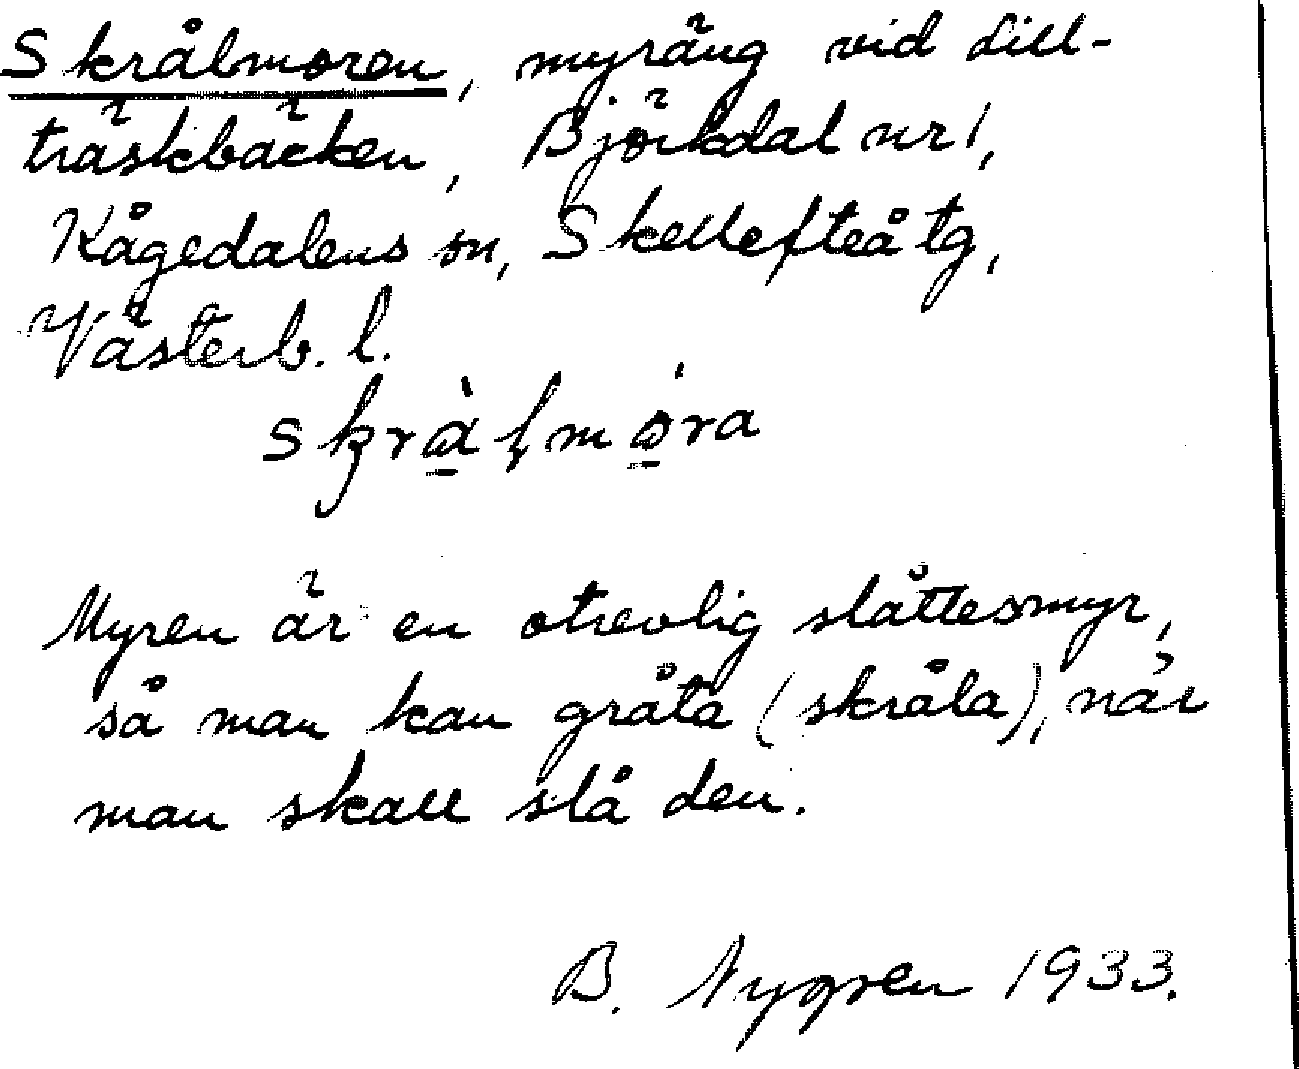 Skrålmoren, myräng vid Lill-
träskbäcken, Björkdal nr 1,
Kågedalens sn, Skellefteå tg,
Västerb. l.
Myren är en otrevlig slåttesmyr,
så man kan gråta (skråla), när
man skall slå den.
B. Nygren 1933.